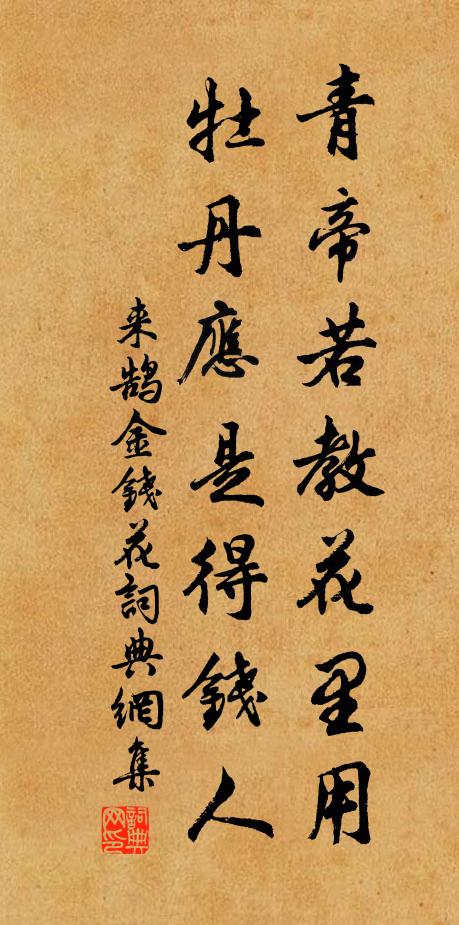 青帝若教花里用
牡丹應是得錢人
来鹄金錢花詞典網集
詞典网印